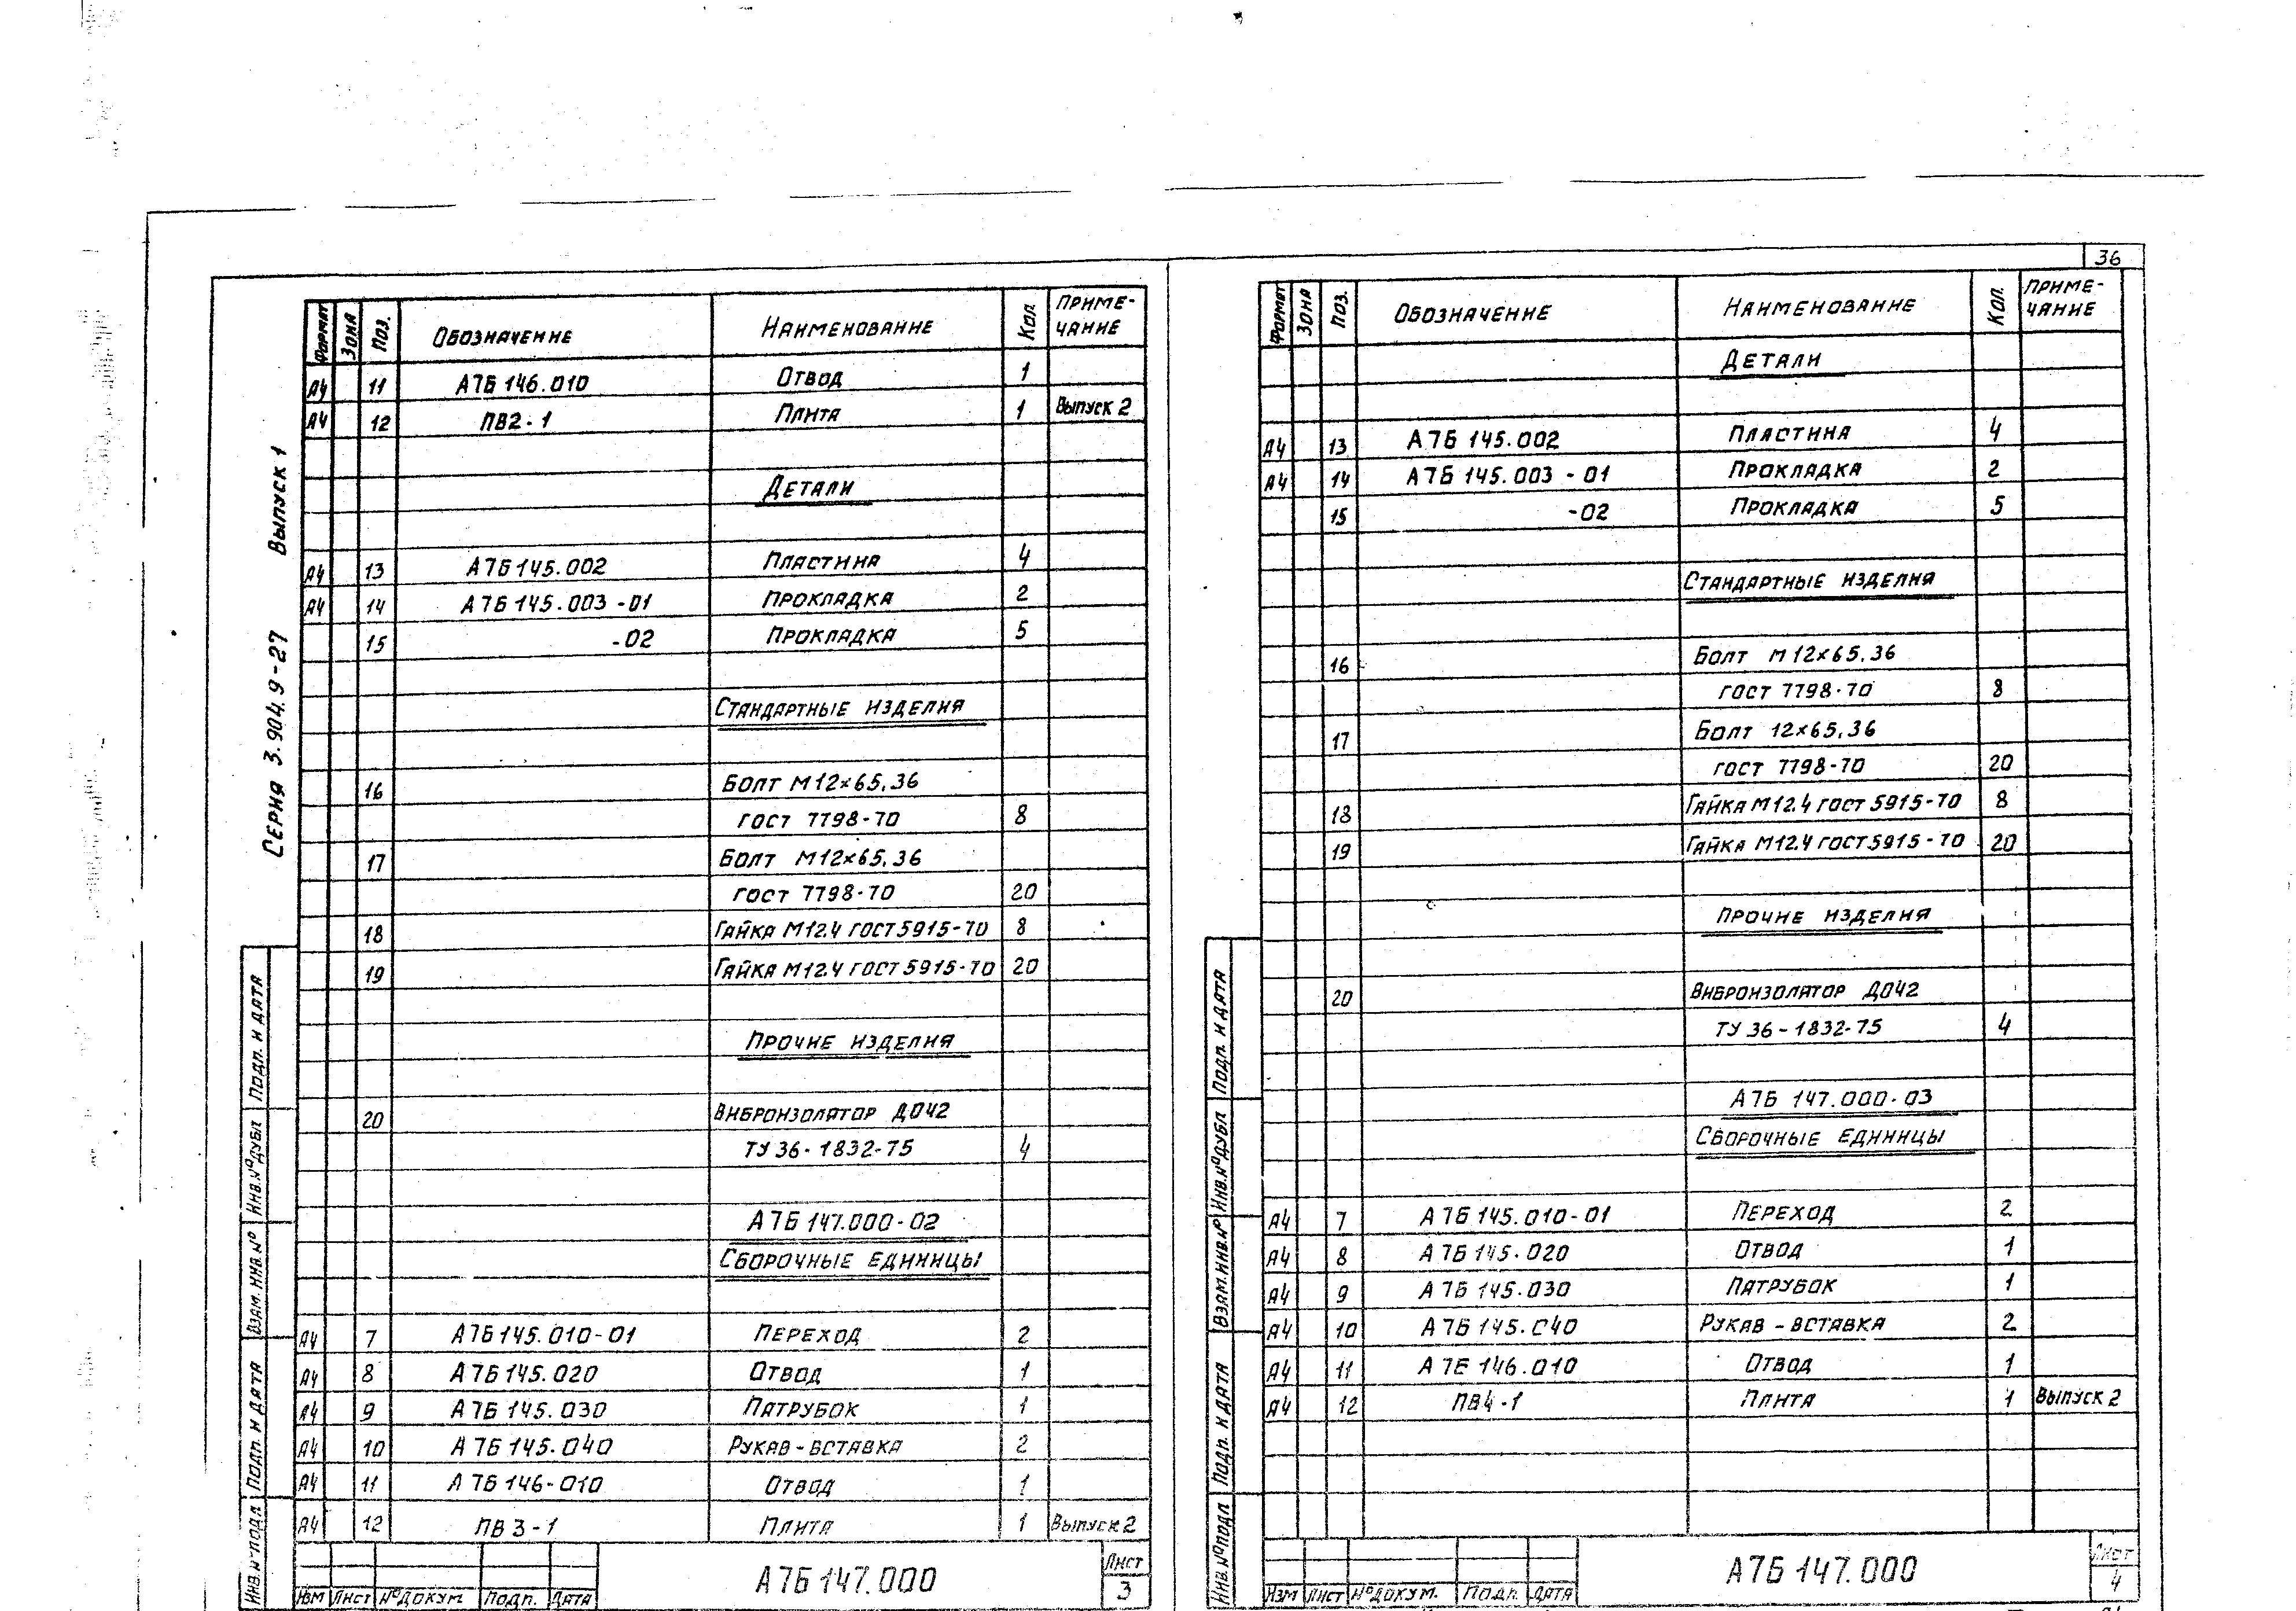 36
Серия 3.904.9-27 Выпуск 1
Формат Зона Поз. Обозначение Наименование Кол Приме-чание
А4 11 А7Б 146.010 Отвод 1
А4 12 ПВ2-1 Плита 1 Выпуск 2
Детали
А4 13 А7Б 145.002 Пластина 4
А4 14 А7Б 145.003-01 Прокладка 2
15 -02 Прокладка 5
Стандартные изделия
16 Болт М12×65,36
ГОСТ 7798-70 8
17 Болт М12×65,36
ГОСТ 7798-70 20
18 Гайка М12.4 ГОСТ 5915-70 8
19 Гайка М12.4 ГОСТ 5915-70 20
Прочие изделия
20 Виброизолятор Д042
ТУ 36-1832-75 4
А7Б 147.000-02
Сборочные единицы
А4 7 А7Б 145.010-01 Переход 2
А4 8 А7Б 145.020 Отвод 1
А4 9 А7Б 145.030 Патрубок 1
А4 10 А7Б 145.040 Рукав-вставка 2
А4 11 А7Б 146-010 Отвод 1
А4 12 ПВ3-1 Плита 1 Выпуск 2
Инв.№подл Подп. и дата Взам.инв.№ Инв.№дубл Подп. и дата
Изм Лист №докум Подп. Дата
А7Б 147.000
Лист
3
Формат Зона Поз. Обозначение Наименование Кол. Приме-чание
Детали
А4 13 А7Б 145.002 Пластина 4
А4 14 А7Б 145.003-01 Прокладка 2
15 -02 Прокладка 5
Стандартные изделия
16 Болт М12×65,36
ГОСТ 7798-70 8
17 Болт 12×65,36
ГОСТ 7798-70 20
18 Гайка М12.4 ГОСТ 5915-70 8
19 Гайка М12.4 ГОСТ 5915-70 20
Прочие изделия
20 Виброизолятор Д042
ТУ 36-1832-75 4
А7Б 147.000-03
Сборочные единицы
А4 7 А7Б 145.010-01 Переход 2
А4 8 А7Б 145.020 Отвод 1
А4 9 А7Б 145.030 Патрубок 1
А4 10 А7Б 145.040 Рукав-вставка 2
А4 11 А7Б 146.010 Отвод 1
А4 12 ПВ4-1 Плита 1 Выпуск 2
Инв.№подл Подп. и дата Взам.инв.№ Инв.№дубл Подп. и дата
Изм Лист №докум. Подп. Дата
А7Б 147.000
Лист
4